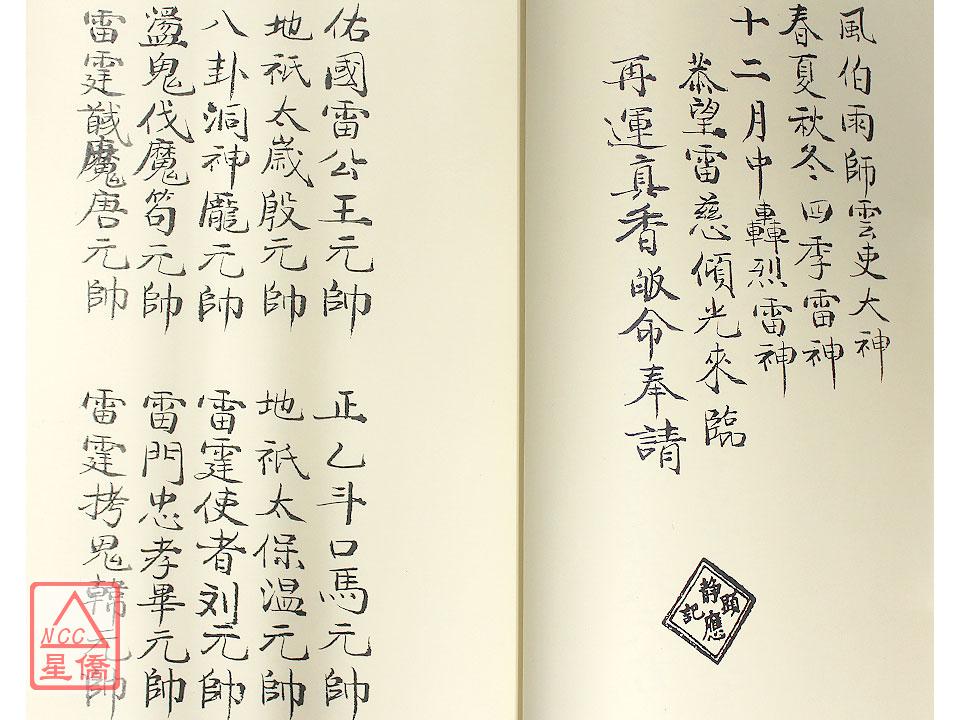 風伯雨師雲吏大神
春夏秋冬四季雷神
十二月中轟烈雷神
恭望雷慈傾光來臨
再運真香皈命奉請
靜應
顕記
佑國雷公王元帥
正乙斗口馬元帥
地祇太嵗殷元帥
地祇太保温元帥
八卦洞神龐元帥
雷霆使者刘元帥
盪鬼伐魔笱元帥
雷門忠孝畢元帥
雷霆馘魔唐元帥
雷霆拷鬼韓元帥
NCC
星僑